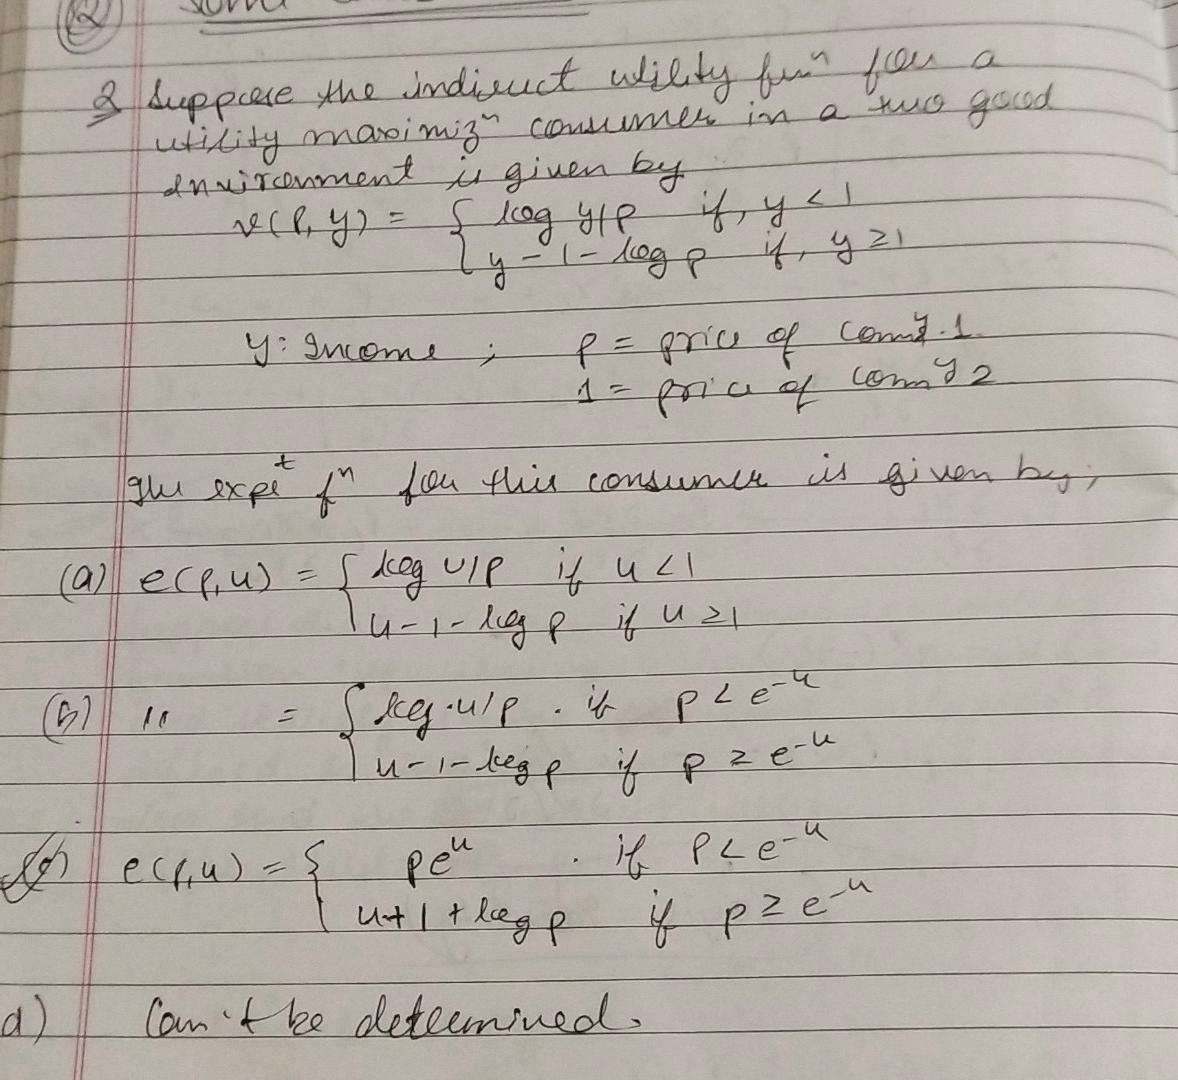 (2)
Q Suppose the indirect utility funⁿ for a
utility maximizⁿ consumer in a two good
environment is given by
v(P, y) = { log y/p if, y < 1
y - 1 - log p if, y ≥ 1
y: Income ; p = price of comᵈʸ. 1.
1 = price of comᵈʸ 2
The expᵗ fⁿ for this consumer is given by,
(a) e(p,u) = { log u/p if u < 1
u - 1 - log p if u ≥ 1
(b) " = { log u/p . if p < e⁻ᵘ
u - 1 - log p if p ≥ e⁻ᵘ
(c) e(p,u) = { peᵘ . if P < e⁻ᵘ
u + 1 + log p if p ≥ e⁻ᵘ
d) Can't be determined.